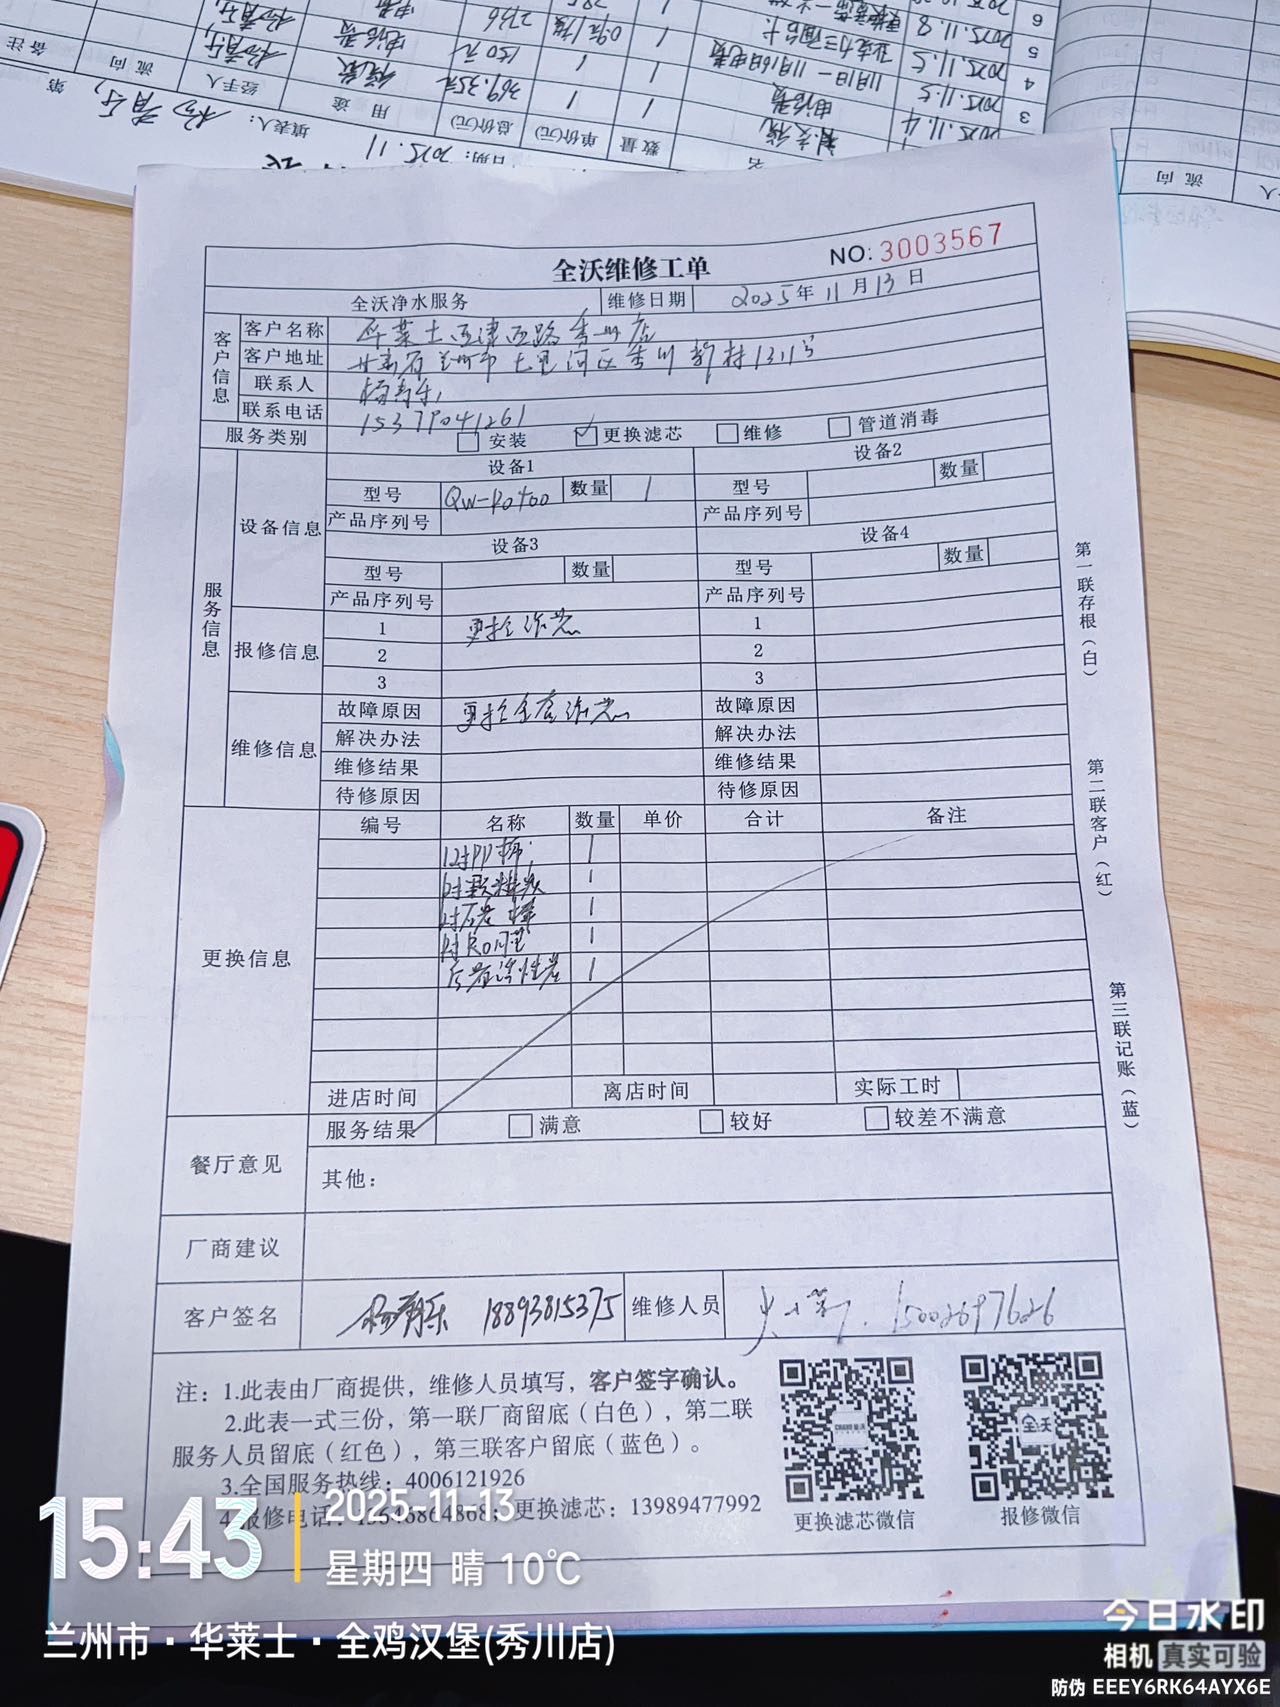 全沃维修工单 NO: 3003567
全沃净水服务 维修日期 2025年11月13日
客户信息
客户名称 华莱士西津西路秀川店
客户地址 甘肃省兰州市七里河区秀川新村1311号
联系人
联系电话 15379041261
服务类别 安装 ✓更换滤芯 维修 管道消毒
服务信息
设备信息
设备1 设备2
型号 QW-RO400 数量 1 型号 数量
产品序列号 产品序列号
设备3 设备4
型号 数量 型号 数量
产品序列号 产品序列号
报修信息
1 更换滤芯 1
2 2
3 3
维修信息
故障原因 更换全套滤芯 故障原因
解决办法 解决办法
维修结果 维修结果
待修原因 待修原因
更换信息
编号 名称 数量 单价 合计 备注
PP棉 1
颗粒炭 1
1
RO膜 1
后置活性炭 1
进店时间 离店时间 实际工时
餐厅意见
服务结果 满意 较好 较差不满意
其他：
厂商建议
客户签名 18893815375 维修人员 15002697626
注：1.此表由厂商提供，维修人员填写，客户签字确认。
2.此表一式三份，第一联厂商留底（白色），第二联
服务人员留底（红色），第三联客户留底（蓝色）。
3.全国服务热线：4006121926
4.报修电话： 更换滤芯：13989477992
更换滤芯微信 报修微信
第一联存根（白）
第二联客户（红）
第三联记账（蓝）
15:43
2025-11-13
星期四 晴 10℃
兰州市·华莱士·全鸡汉堡(秀川店)
今日水印
相机 真实可验
防伪 EEEY6RK64AYX6E
日期：2025.11
填表人：
第
数量 单价(元) 总价(元) 用途 经手人 流向 备注
流向
3 2025.11.4
4 2025.11.5 11月1日—11月16日电费
5 2025.11.5
6 2025.11.8
369.35元
150元